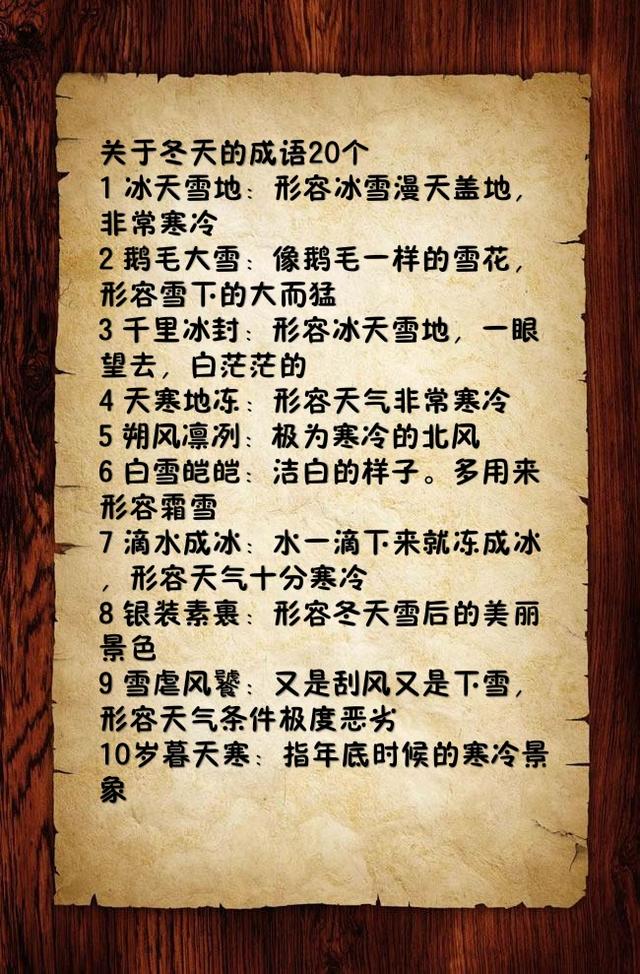 关于冬天的成语20个
1 冰天雪地：形容冰雪漫天盖地，
非常寒冷
2 鹅毛大雪：像鹅毛一样的雪花，
形容雪下的大而猛
3 千里冰封：形容冰天雪地，一眼
望去，白茫茫的
4 天寒地冻：形容天气非常寒冷
5 朔风凛冽：极为寒冷的北风
6 白雪皑皑：洁白的样子。多用来
形容霜雪
7 滴水成冰：水一滴下来就冻成冰
，形容天气十分寒冷
8 银装素裹：形容冬天雪后的美丽
景色
9 雪虐风饕：又是刮风又是下雪，
形容天气条件极度恶劣
10岁暮天寒：指年底时候的寒冷景
象